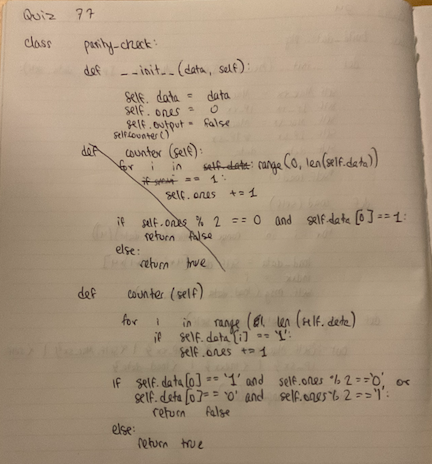 Quiz 77
class parity-check:
def __init__(data, self):
self.data = data
self.ones = 0
self.output = false
self.counter()
def counter (self):
for i in self.data: range(0, len(self.data))
== 1:
self.ones += 1
if self.ones % 2 == 0 and self.data[0]==1:
return false
else:
return true
def counter (self)
for i in range (1, len (self.data)
if self.data[i] == '1':
self.ones += 1
if self.data[0] == '1' and self.ones % 2=='0', or
self.data[0]== '0' and self.ones % 2=='1':
return false
else:
return true